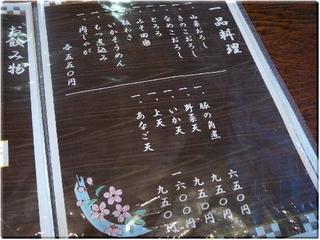 一品料理
一、山菜おろし
一、きのこおろし
一、なめこおろし
一、とろろ
一、みそ田楽
一、板わさ
一、いかそうめん
一、もつ煮込み
一、肉じゃが
各五五〇円
一、豚の角煮 六五〇円
一、野菜天 九五〇円
一、いか天 九五〇円
一、上天 一六〇〇円
一、あなご天 九五〇円
お飲み物